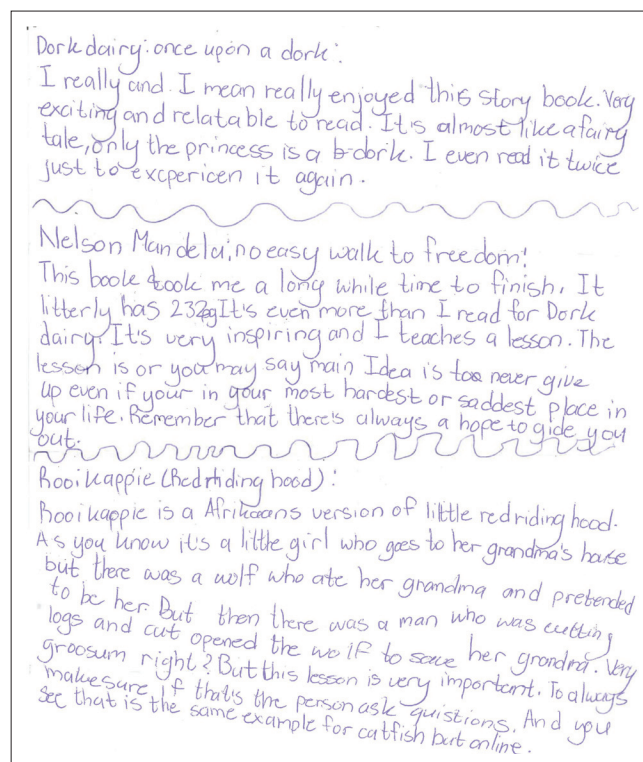 Dork dairy: once upon a dork:
I really and I mean really enjoyed this story book. Very
exciting and relatable to read. It's almost like a fairy
tale, only the princess is a dork. I even read it twice
just to excpericen it again.
Nelson Mandela; no easy walk to freedom!
This book took me a long while time to finish. It
litterly has 232pg It's even more than I read for Dork
dairy. It's very inspiring and I teaches a lesson. The
lesson is or you may say main Idea is too never give
up even if your in your most hardest or saddest place in
your life. Remember that there's always a hope to gide you
out.
Rooikappie (Redriding hood):
Rooikappie is a Afrikaans version of little redriding hood.
As you know it's a little girl who goes to her grandma's house
but there was a wolf who ate her grandma and pretended
to be her. But then there was a man who was cutting
logs and cut opened the wolf to save her grandma. Very
groosum right? But this lesson is very important. To always
makesure if that's the person ask quistions. And you
see that is the same example for catfish but online.